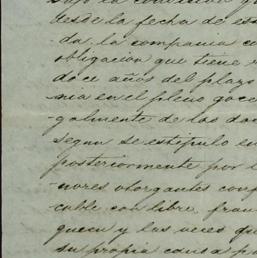 bajo la condicion q
desde la fecha de es
da la compania c
obligacion que tiene
doce años del plazo
nia en el pleno goce
galmente de las do
segun se estipulo en
posteriormente por l
nores otorgantes conf
cable con libre, fran
quecu y las veces qu
su propia causa p